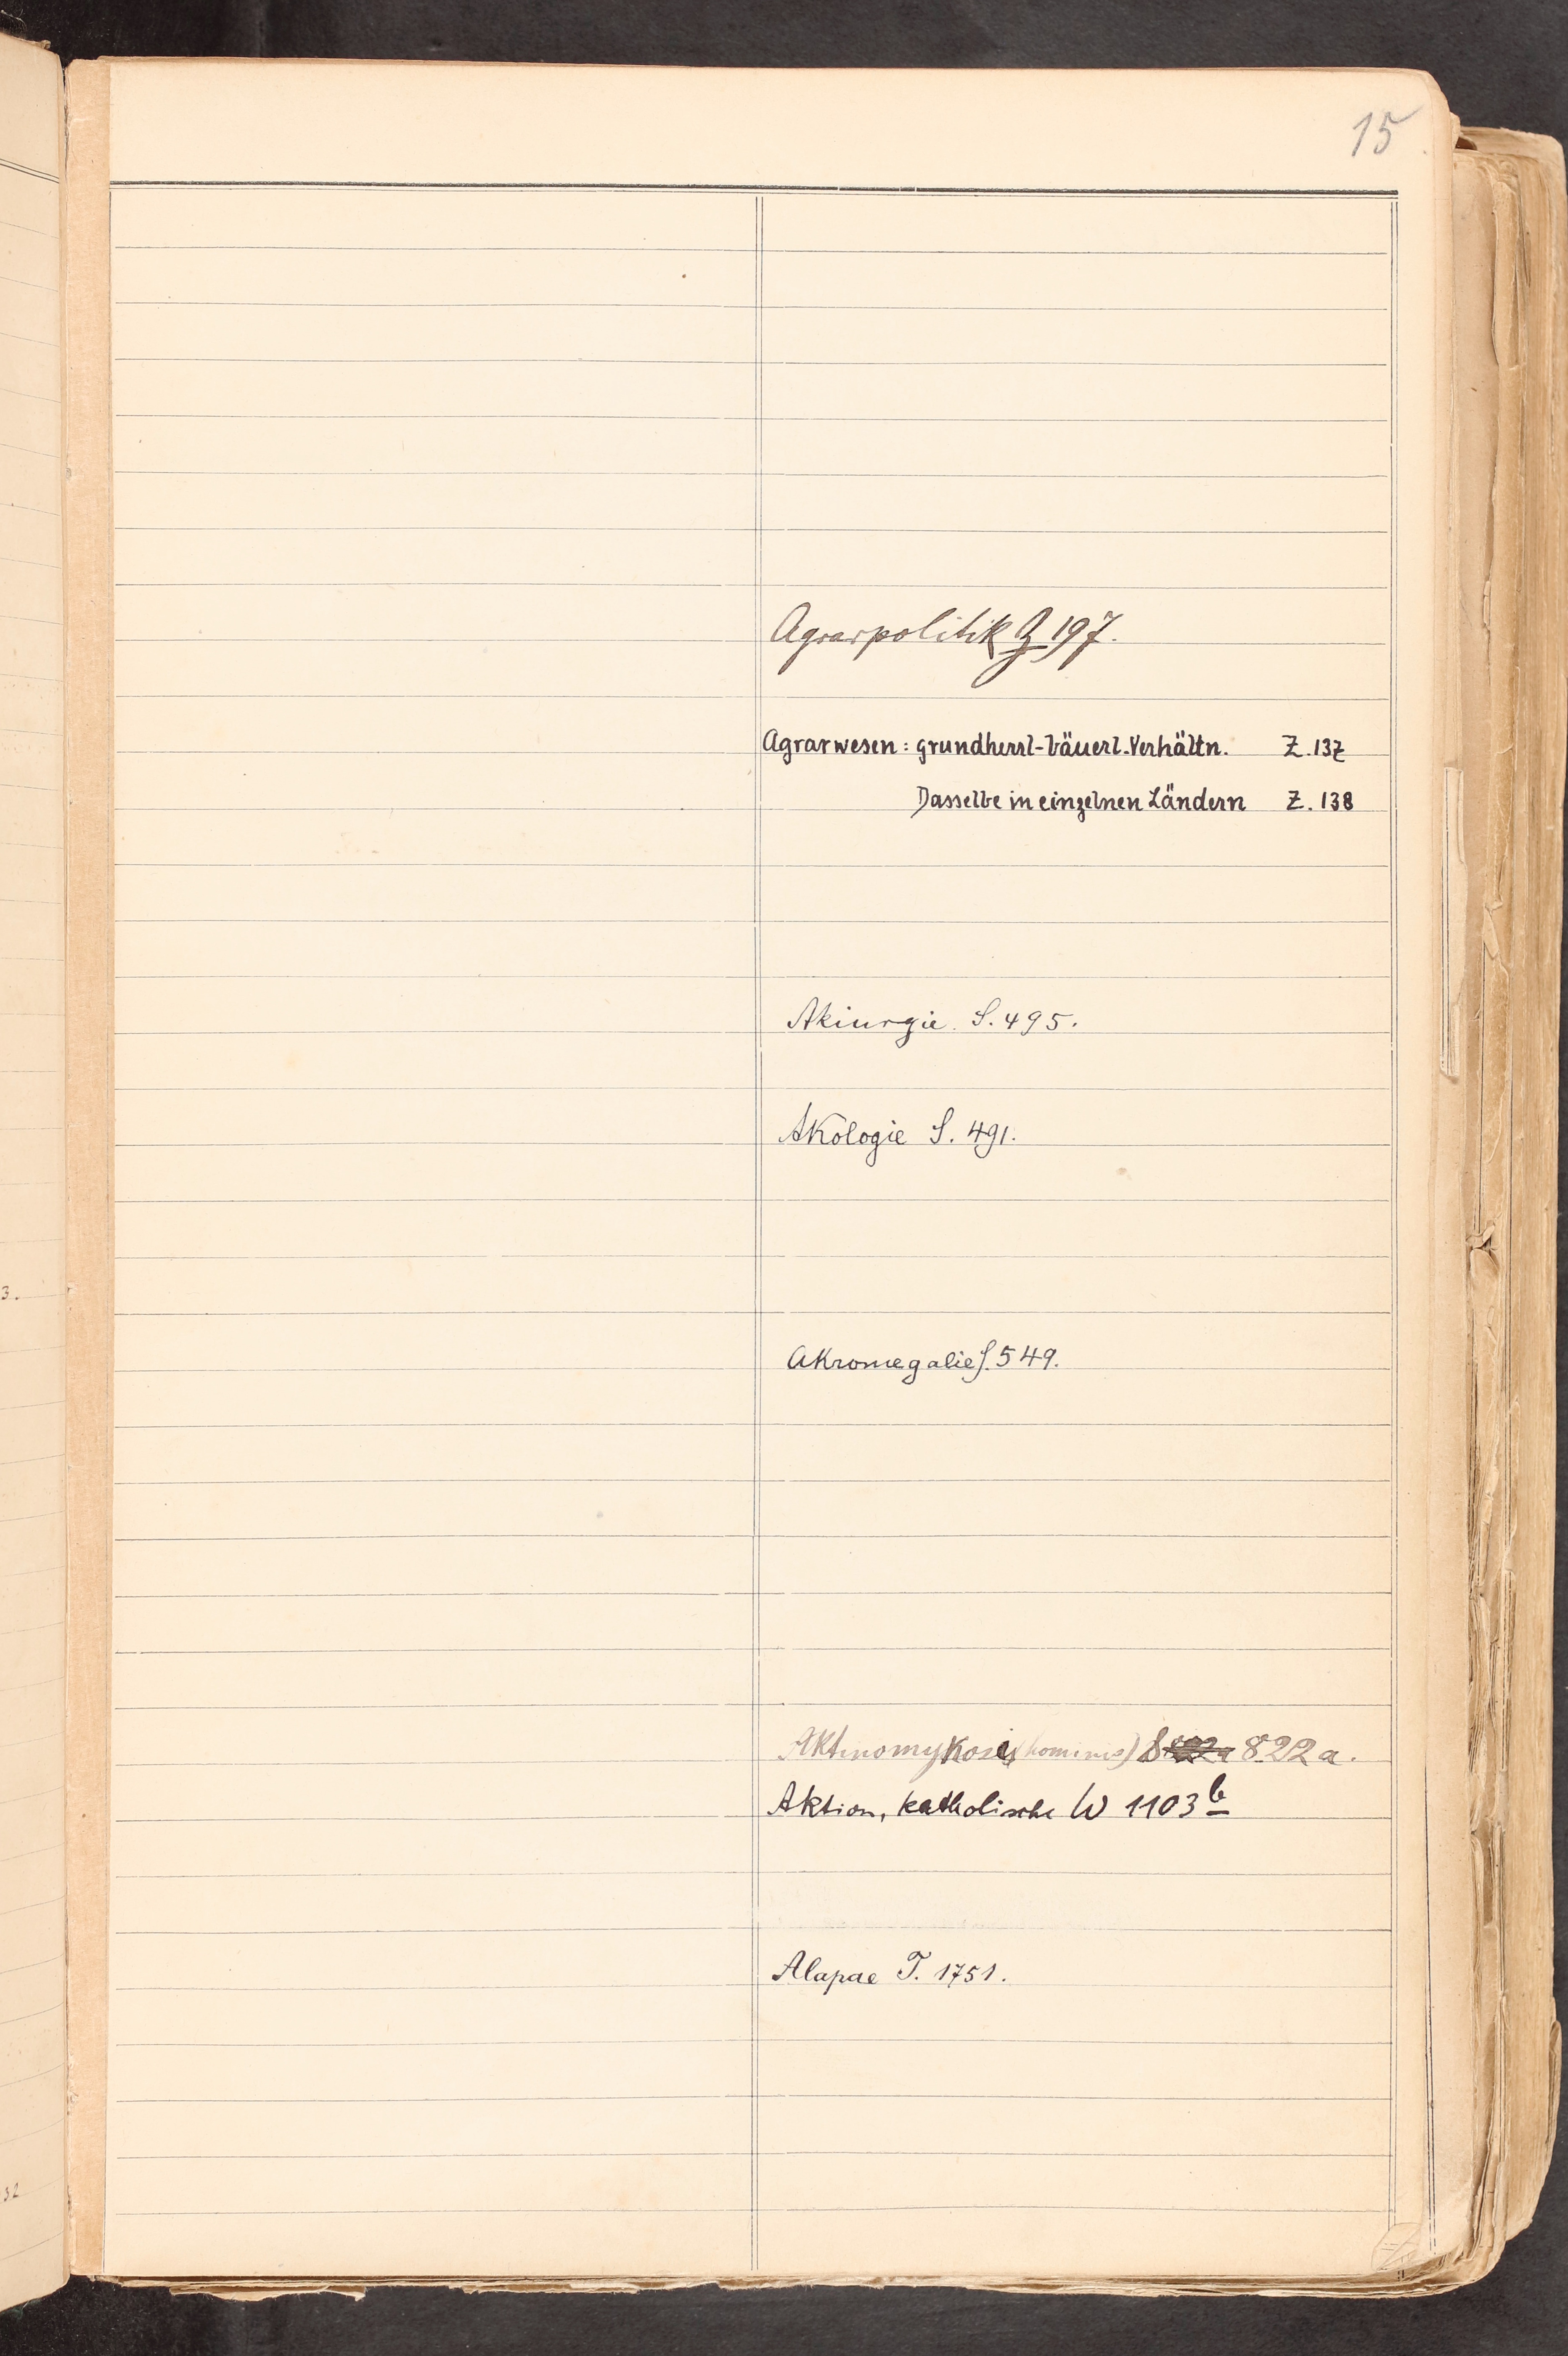 15
Agrarpolitik Z 197.
Agrarwesen: grundherrl-bäuerl. Verhältn. Z. 137
Dasselbe in einzelnen Ländern Z. 138
Akiurgie. S. 495.
Akologie S. 491.
3.
Akromegalie S. 549.
Aktinomykosis (hominis) S 822 a.
Aktion, katholische W 1103 b
Alapae T. 1751.
32